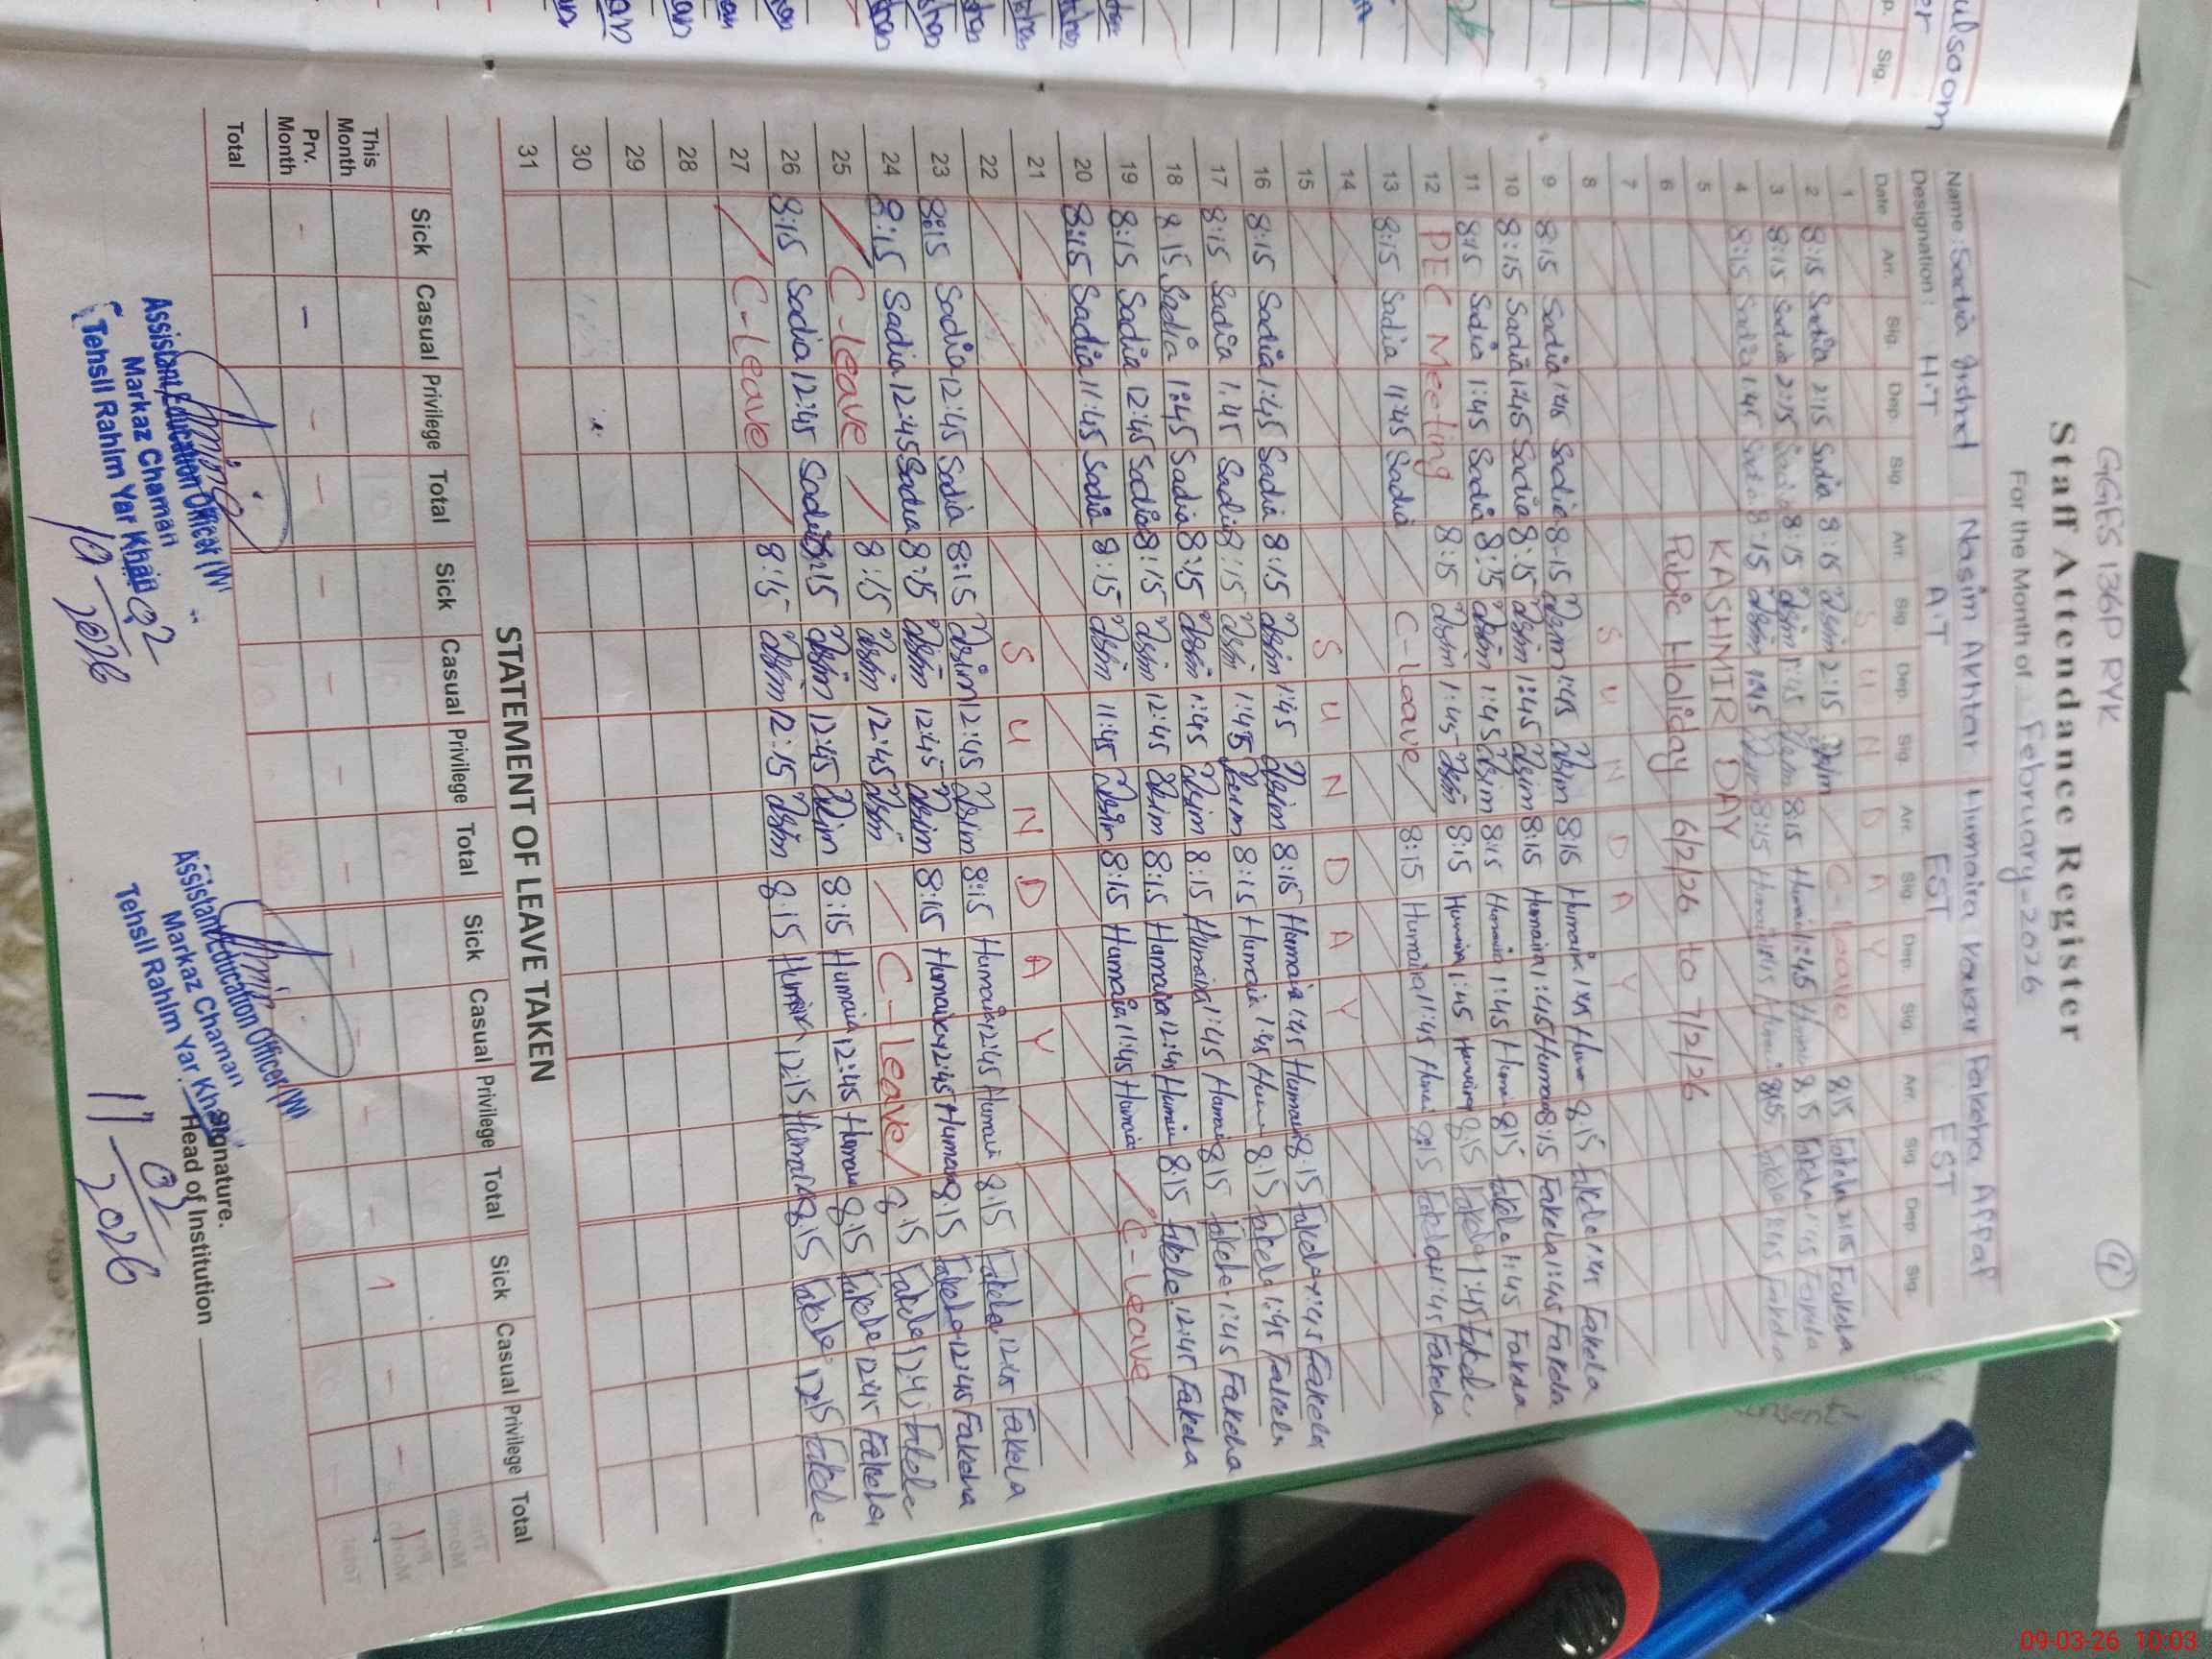 GGES 136P RYK
Staff Attendance Register
For the Month of February-2026
4
Name: Sadia Arshad Nasim Akhtar Humaira Kausar Fakeha Altaf
Designation: H.T A.T EST EST
Date Arr. Sig. Dep. Sig. Arr. Sig. Dep. Sig. Arr. Sig. Dep. Sig. Arr. Sig. Dep. Sig.
1 S U N D A Y
2 8:15 Sadia 2:15 Sadia 8:15 Nasim 2:15 Nasim C-leave 8:15 Fakeha 2:15 Fakeha
3 8:15 Sadia 2:15 Sadia 8:15 Nasim 1:45 Nasim 8:15 Humaira 1:45 Humaira 8:15 Fakeha 1:45 Fakeha
4 8:15 Sadia 1:45 Sadia 8:15 Nasim 1:45 Nasim 8:15 Humaira 1:45 Humaira 8:15 Fakeha 1:45 Fakeha
5 KASHMIR DAY
6 Pubic Holiday 6/2/26 to 7/2/26
7
8 S U N D A Y
9 8:15 Sadia 1:45 Sadia 8:15 Nasim 1:45 Nasim 8:15 Humaira 1:45 Humaira 8:15 Fakeha 1:45 Fakeha
10 8:15 Sadia 1:45 Sadia 8:15 Nasim 1:45 Nasim 8:15 Humaira 1:45 Humaira 8:15 Fakeha 1:45 Fakeha
11 8:15 Sadia 1:45 Sadia 8:15 Nasim 1:45 Nasim 8:15 Humaira 1:45 Humaira 8:15 Fakeha 1:45 Fakeha
12 PEC Meeting 8:15 Nasim 1:45 Nasim 8:15 Humaira 1:45 Humaira 8:15 Fakeha 1:45 Fakeha
13 8:15 Sadia 11:45 Sadia C-leave 8:15 Humaira 11:45 Humaira 8:15 Fakeha 11:45 Fakeha
14
15 S U N D A Y
16 8:15 Sadia 1:45 Sadia 8:15 Nasim 1:45 Nasim 8:15 Humaira 1:45 Humaira 8:15 Fakeha 1:45 Fakeha
17 8:15 Sadia 1:45 Sadia 8:15 Nasim 1:45 Nasim 8:15 Humaira 1:45 Humaira 8:15 Fakeha 1:45 Fakeha
18 8:15 Sadia 1:45 Sadia 8:15 Nasim 1:45 Nasim 8:15 Humaira 1:45 Humaira 8:15 Fakeha 1:45 Fakeha
19 8:15 Sadia 12:45 Sadia 8:15 Nasim 12:45 Nasim 8:15 Humaira 12:45 Humaira 8:15 Fakeha 12:45 Fakeha
20 8:15 Sadia 11:45 Sadia 8:15 Nasim 11:45 Nasim 8:15 Humaira 11:45 Humaira C-leave
21
22 S U N D A Y
23 8:15 Sadia 12:45 Sadia 8:15 Nasim 12:45 Nasim 8:15 Humaira 12:45 Humaira 8:15 Fakeha 12:45 Fakeha
24 8:15 Sadia 12:45 Sadia 8:15 Nasim 12:45 Nasim 8:15 Humaira 12:45 Humaira 8:15 Fakeha 12:45 Fakeha
25 C-leave 8:15 Nasim 12:45 Nasim C-leave 8:15 Fakeha 12:45 Fakeha
26 8:15 Sadia 12:45 Sadia 8:15 Nasim 12:45 Nasim 8:15 Humaira 12:45 Humaira 8:15 Fakeha 12:45 Fakeha
27 C-leave 8:15 Nasim 12:15 Nasim 8:15 Humaira 12:15 Humaira 8:15 Fakeha 12:15 Fakeha
28
29
30
31
STATEMENT OF LEAVE TAKEN
Sick Casual Privilege Total Sick Casual Privilege Total Sick Casual Privilege Total Sick Casual Privilege Total
This Month
Prv. Month - - - - - - - - - - - - 1 - - 1
Total
Assistant Education Officer (W)
Markaz Chaman
Tehsil Rahim Yar Khan
10-02-2026
Assistant Education Officer (W)
Markaz Chaman
Tehsil Rahim Yar Khan
17-02-2026
Signature.
Head of Institution
ulsoom
p. Sig.
09-03-26 10:03